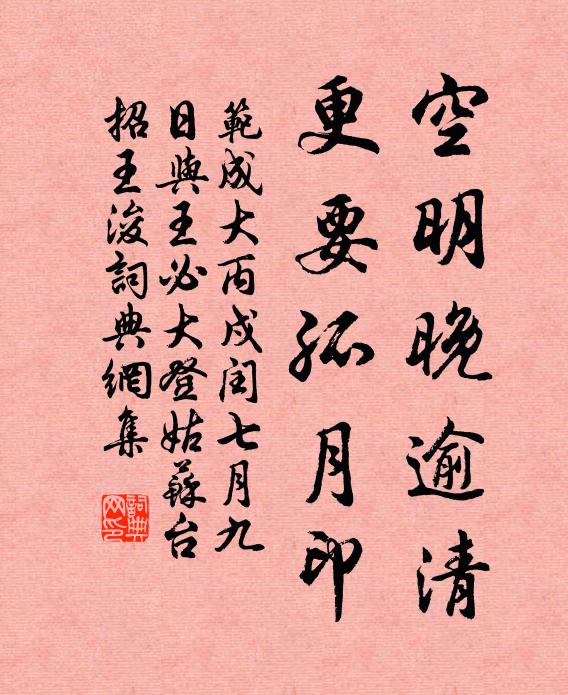 空明晚逾清
更要孤月印
範成大丙戍閏七月九
日與王必大登姑蘇台
招王浚詞典網集
詞典
网印